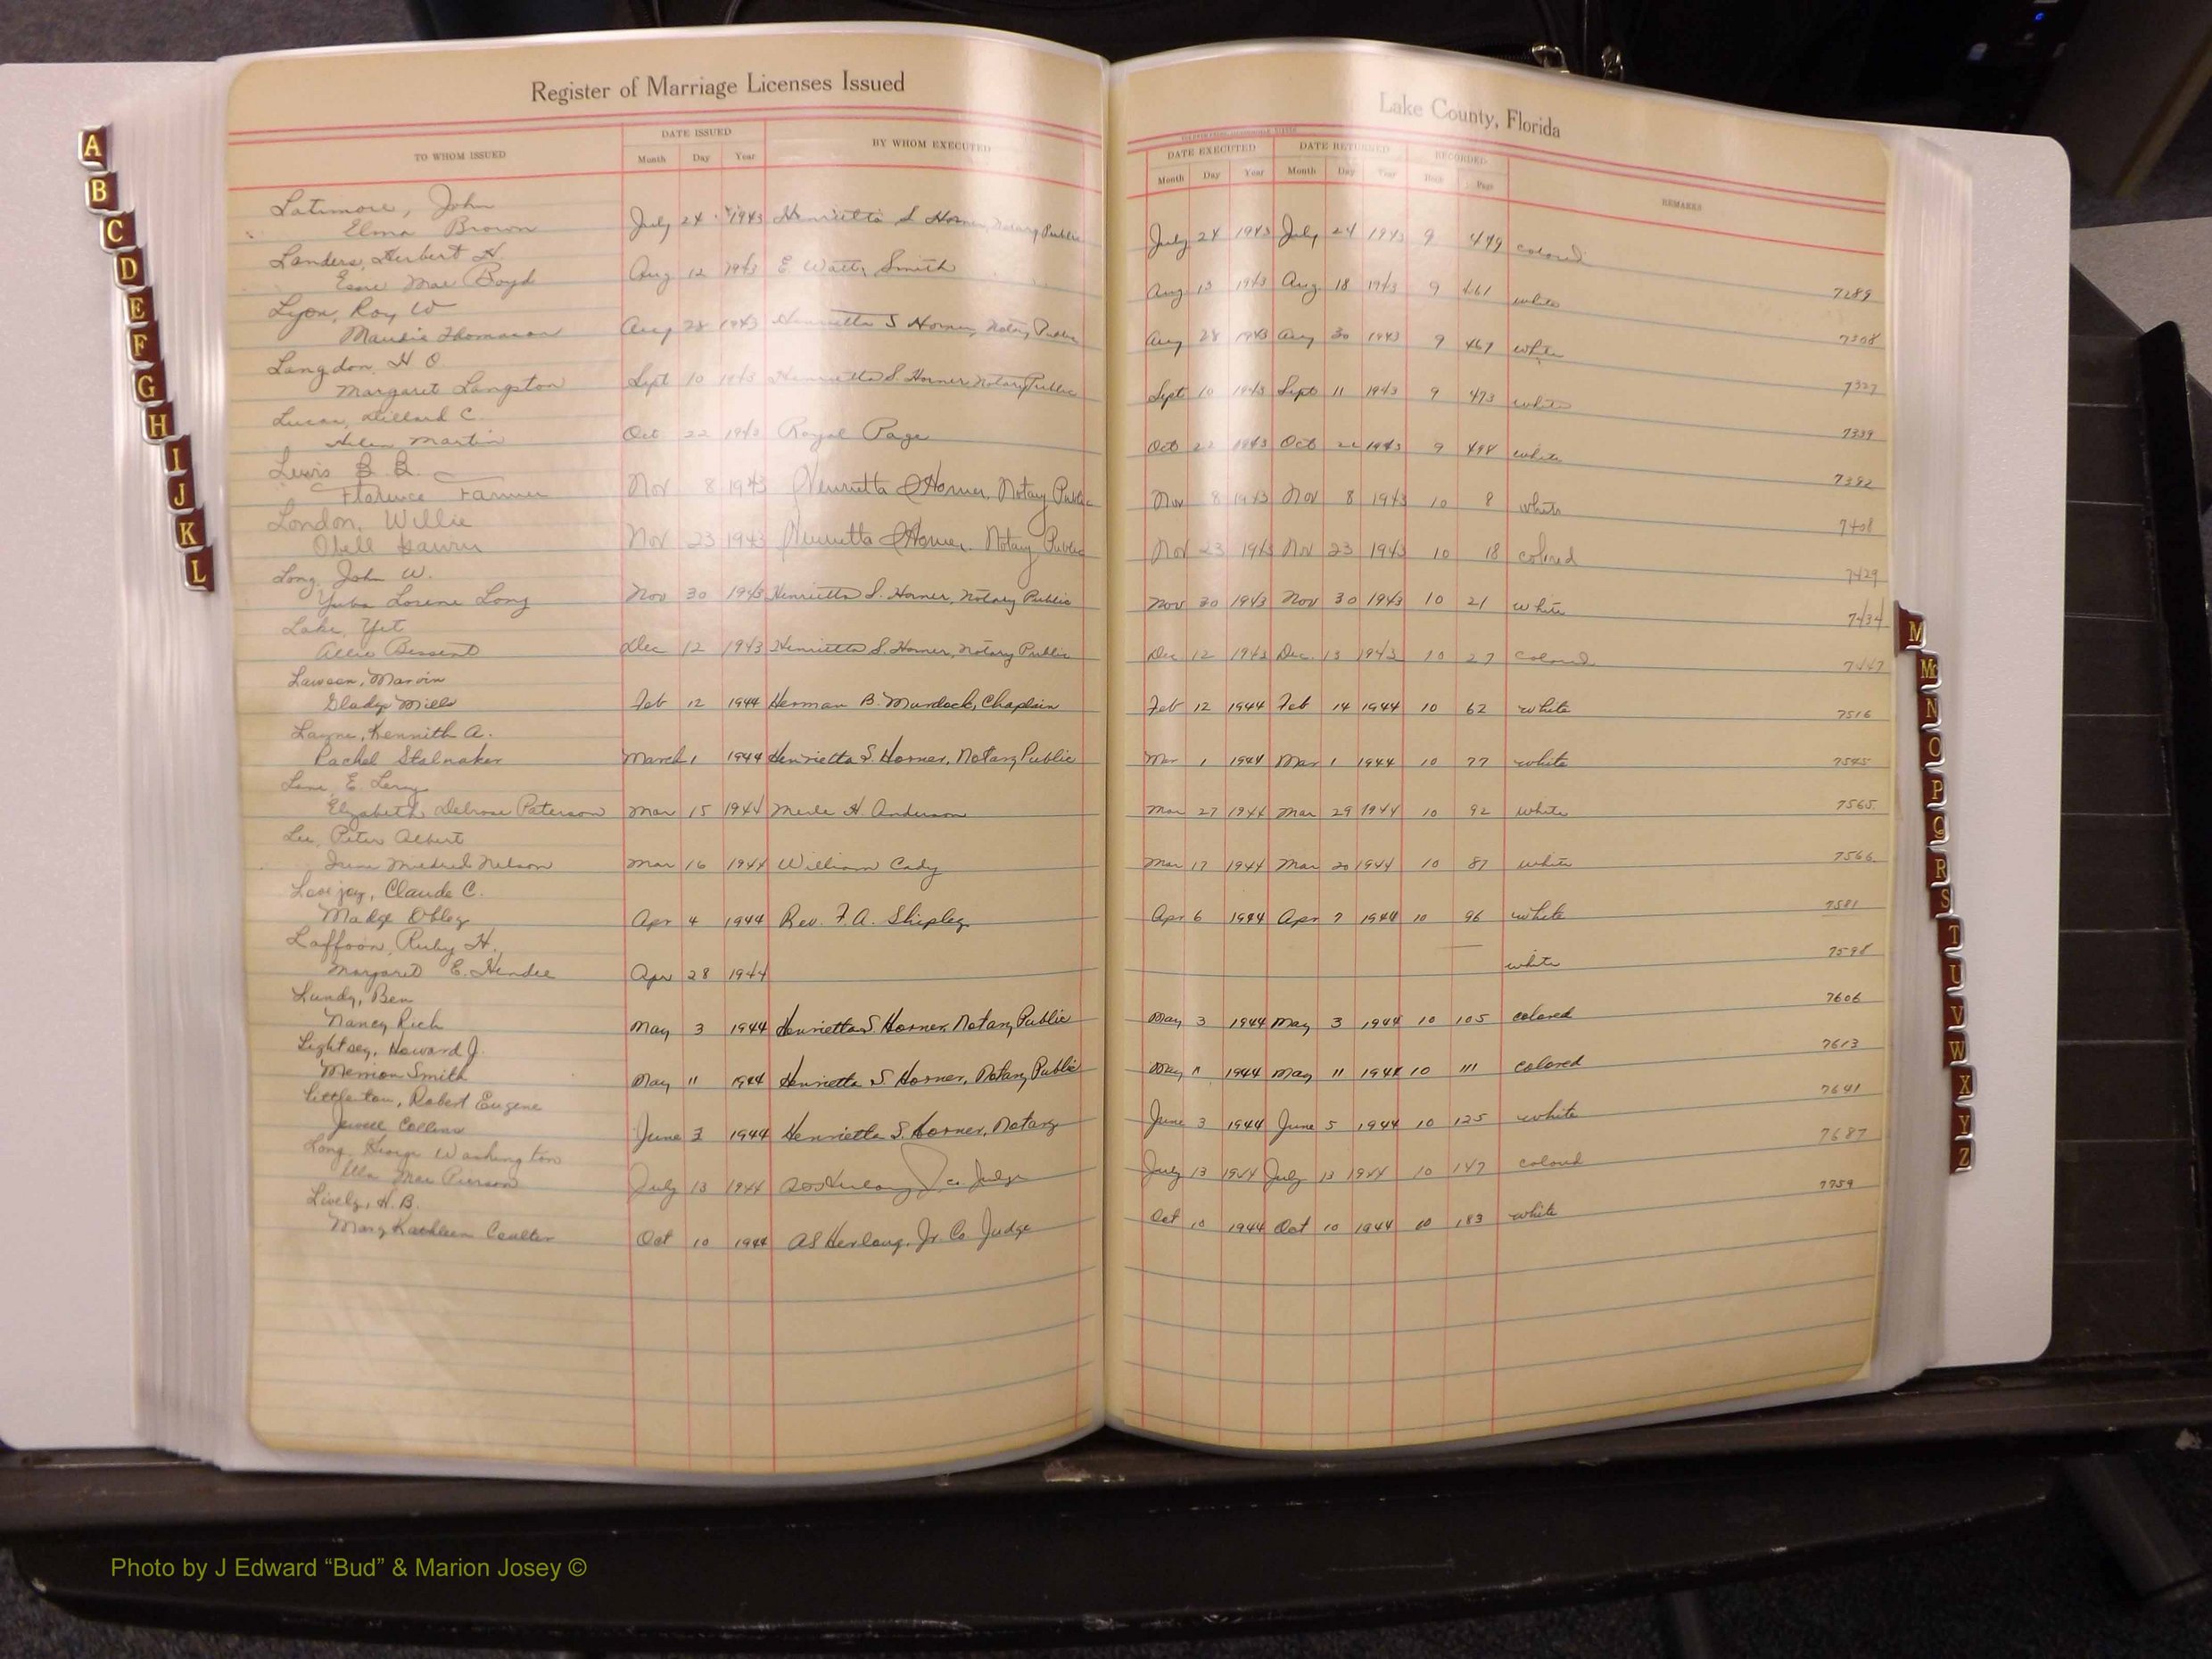 Register of Marriage Licenses Issued
TO WHOM ISSUED DATE ISSUED BY WHOM EXECUTED
Month Day Year
Latimore, John
Elma Brown July 24 1943 Henrietta S Horner, Notary Public
Landers, Herbert H.
Essie Mae Boyd Aug 12 1943 E. Watts Smith
Lyon, Roy W
Maudie Thomason Aug 28 1943 Henrietta S Horner, Notary Public
Langdon, H O
Margaret Langston Sept 10 1943 Henrietta S. Horner, Notary Public
Lucas, Dillard C.
Helen Martin Oct. 22 1943 Royal Page
Lewis B. B.
Florence Farmer Nov 8 1943 Henrietta S Horner, Notary Public
London, Willie
Obell Nov 23 1943 Henrietta S Horner. Notary Public
Long, John W.
Lorene Long Nov 30 1943 Henrietta S. Horner, Notary Public
Lake, Yet
Allie Bessent Dec 12 1943 Henrietta S. Horner, Notary Public
Lawson, Marvin
Gladys Mills Feb 12 1944 Herman B. Murdock, Chaplain
Layne, Kennith A.
Rachel Stalnaker March 1 1944 Henrietta S. Horner, Notary Public
Lane, E. Leroy
Elizabeth Delrose Paterson Mar 15 1944 Merle H. Anderson
Lee, Peter Albert
Irene Mildred Nelson Mar 16 1944 William Cady
Lovejoy, Claude C.
Madge Obley Apr 4 1944 Rev. F. A. Shipley
Laffoon, Ruby H.
Margaret E. Hendee Apr 28 1944
Lundy, Ben
Nancy Rich May 3 1944 Henrietta S. Horner, Notary Public
Lightsey, Howard J.
Smith May 11 1944 Henrietta S Horner, Notary Public
Littleton, Robert Eugene
Jewell Collins June 3 1944 Henrietta S. Horner, Notary
Long, George Washington
Ella Mae Pierson July 13 1944 Co Judge
Lively, H. B.
Mary Kathleen Coulter Oct 10 1944 A S Herlong, Jr. Co Judge
Lake County, Florida
DATE EXECUTED DATE RETURNED RECORDED REMARKS
Month Day Year Month Day Year Book Page
July 24 1943 July 24 1943 9 449 colored
7289
Aug 13 1943 Aug. 18 1943 9 461 white
7308
Aug 28 1943 Aug 30 1943 9 467 white
7327
Sept 10 1943 Sept 11 1943 9 473 white
7339
Oct 22 1943 Oct 22 1943 9 498 white
7392
Nov 8 1943 Nov 8 1943 10 8 white
7408
Nov 23 1943 Nov 23 1943 10 18 colored
7429
Nov 30 1943 Nov 30 1943 10 21 white
7434
Dec 12 1943 Dec. 13 1943 10 27 colored
7447
Feb 12 1944 Feb 14 1944 10 62 white
7516
Mar 1 1944 Mar 1 1944 10 77 white
7545
Mar 27 1944 Mar 29 1944 10 92 white
7565
Mar 17 1944 Mar 20 1944 10 87 white
7566
Apr 6 1944 Apr 7 1944 10 96 white
7581
white
7598
May 3 1944 May 3 1944 10 105 colored
7606
May 11 1944 May 11 1944 10 111 colored
7613
June 3 1944 June 5 1944 10 125 white
7641
July 13 1944 July 13 1944 10 147 colored
7687
Oct 10 1944 Oct 10 1944 10 183 white
7759
A
B
C
D
E
F
G
H
I
J
K
L
M
Mc
N
O
P
Q
R
S
T
U
V
W
X
Y
Z
Photo by J Edward “Bud” & Marion Josey ©